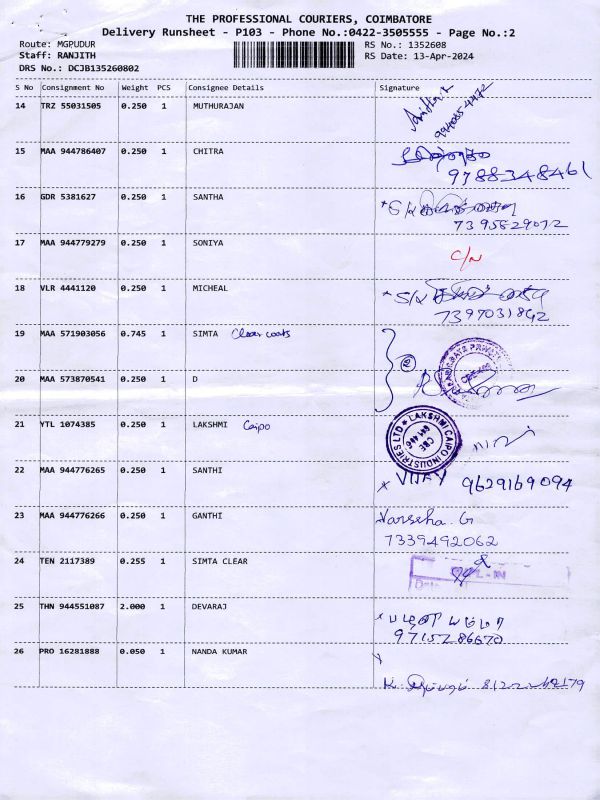 THE PROFESSIONAL COURIERS, COIMBATORE
Delivery Runsheet - P103 - Phone No.:0422-3505555 - Page No.:2
Route: MGPUDUR
RS No.: 1352608
Staff: RANJITH
RS Date: 13-Apr-2024
DRS No.: DCJB135260802
S No Consignment No Weight PCS Consignee Details Signature
14 TRZ 55031505 0.250 1 MUTHURAJAN
15 MAA 944786407 0.250 1 CHITRA
9788348461
16 GDR 5381627 0.250 1 SANTHA
7395829072
17 MAA 944779279 0.250 1 SONIYA C/N
18 VLR 4441120 0.250 1 MICHEAL
7397031842
19 MAA 571903056 0.745 1 SIMTA Clear coats
20 MAA 573870541 0.250 1 D
21 YTL 1074385 0.250 1 LAKSHMI Caipo
LAKSHMI CAIPO INDUSTRIES LTD
CBE
641 446
22 MAA 944776265 0.250 1 SANTHI VIJAY 9629169094
23 MAA 944776266 0.250 1 GANTHI Varseha. G
7339492062
24 TEN 2117389 0.255 1 SIMTA CLEAR
25 THN 944551087 2.000 1 DEVARAJ
9715286670
26 PRO 16281888 0.050 1 NANDA KUMAR